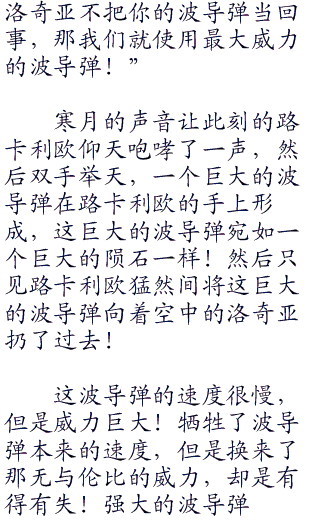 洛奇亚不把你的波导弹当回
事，那我们就使用最大威力
的波导弹！”
寒月的声音让此刻的路
卡利欧仰天咆哮了一声，然
后双手举天，一个巨大的波
导弹在路卡利欧的手上形
成，这巨大的波导弹宛如一
个巨大的陨石一样！然后只
见路卡利欧猛然间将这巨大
的波导弹向着空中的洛奇亚
扔了过去！
这波导弹的速度很慢，
但是威力巨大！牺牲了波导
弹本来的速度，但是换来了
那无与伦比的威力，却是有
得有失！强大的波导弹